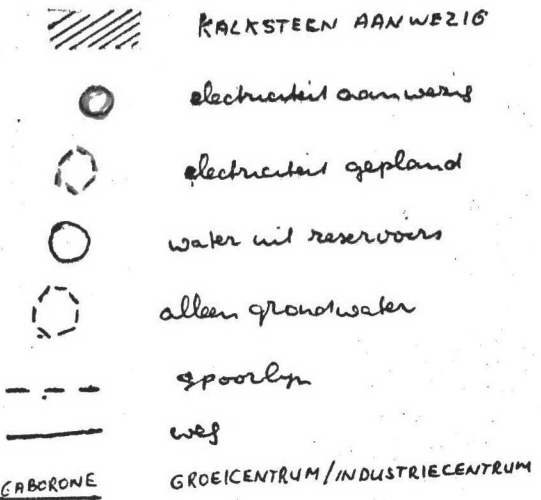 KALKSTEEN AANWEZIG
electriciteit aanwezig
electriciteit gepland
water uit reservoirs
alleen grondwater
spoorlijn
weg
GABORONE GROEICENTRUM/INDUSTRIECENTRUM